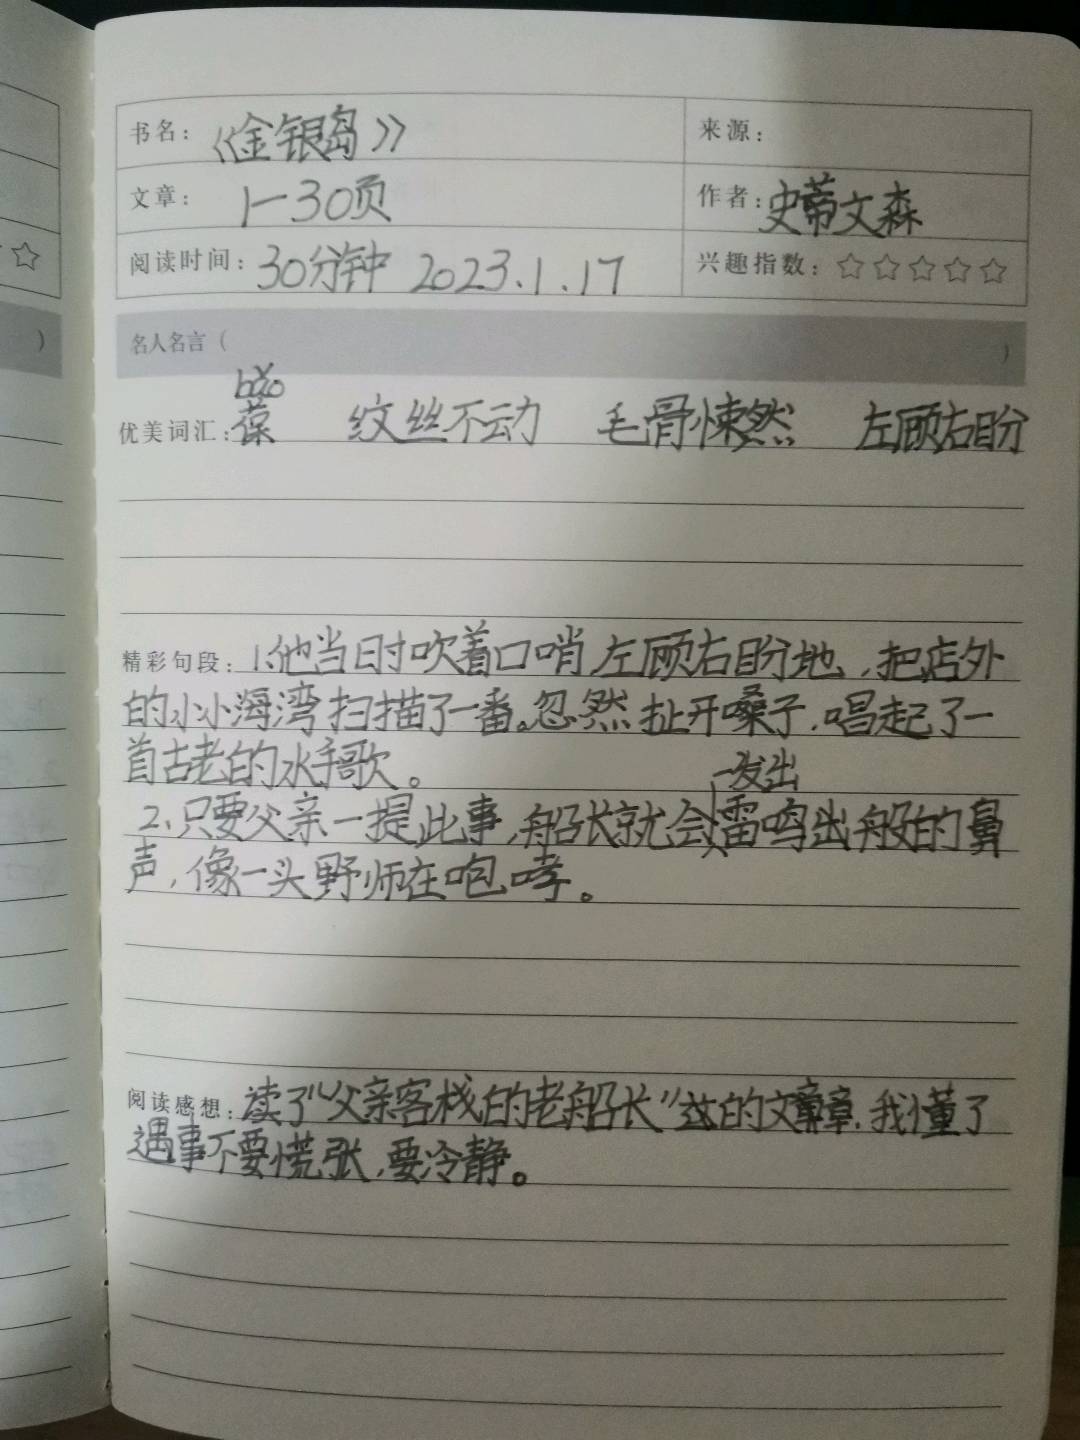 书名：《金银岛》 来源：
文章： 1—30页 作者：史蒂文森
阅读时间：30分钟 2023.1.17 兴趣指数：☆☆☆☆☆
名人名言（ ）
bǎo
优美词汇：葆 纹丝不动 毛骨悚然 左顾右盼
精彩句段：1、他当时吹着口哨左顾右盼地，把店外
的小小海湾扫描了一番。忽然扯开嗓子，唱起了一
首古老的水手歌。
发出
2、只要父亲一提此事，船长就会雷鸣出般的鼻
声，像一头野师在咆哮。
阅读感想：读了“父亲客栈的老船长”这的文章，我懂了
遇事不要慌张，要冷静。